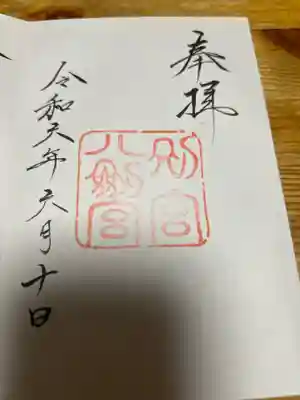 奉拝
別宮
八剣宮
令和元年六月十日